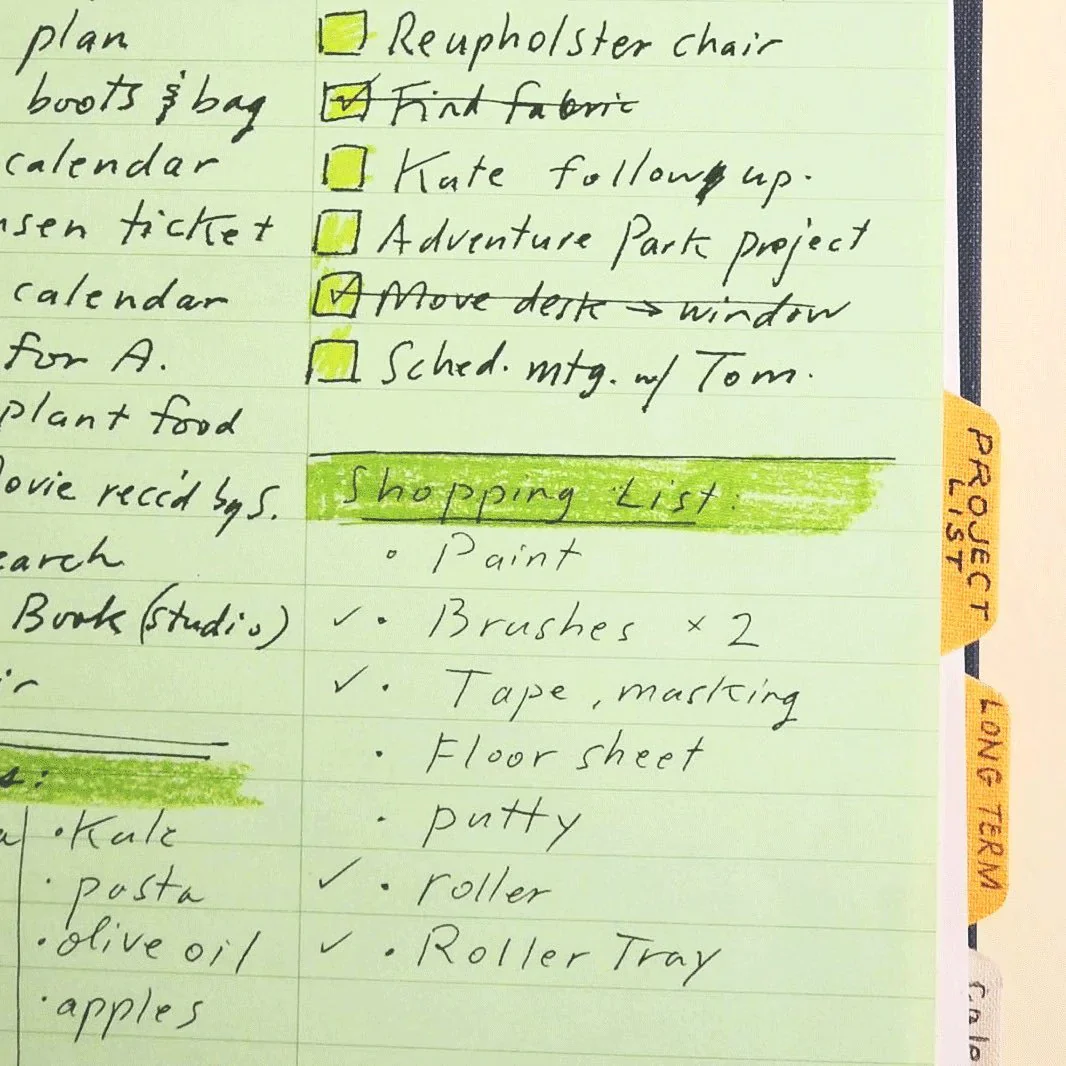 plan
boots & bag
calendar
ticket
calendar
for A.
plant food
rec'd by S.
Book (studio)
• Kale
• pasta
• olive oil
• apples
Reupholster chair
✓ Find fabric
Kate follow up.
Adventure Park project
✓ Move desk → window
Sched. mtg. w/ Tom.
Shopping List:
• Paint
✓ • Brushes x 2
✓ • Tape, masking
• Floor sheet
• putty
✓ • roller
✓ • Roller Tray
PROJECT
LIST
LONG TERM